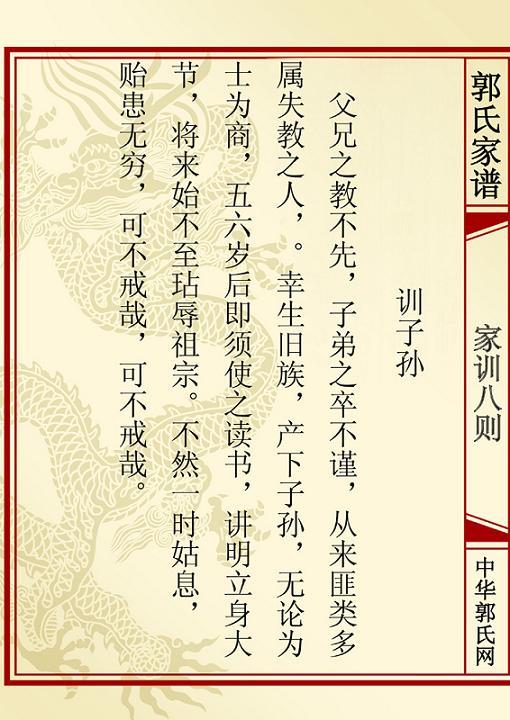 郭氏家谱
家训八则
中华郭氏网
训子孙
父兄之教不先，子弟之卒不谨，从来匪类多
属失教之人，。幸生旧族，产下子孙，无论为
士为商，五六岁后即须使之读书，讲明立身大
节，将来始不至玷辱祖宗。不然一时姑息，
贻患无穷，可不戒哉，可不戒哉。